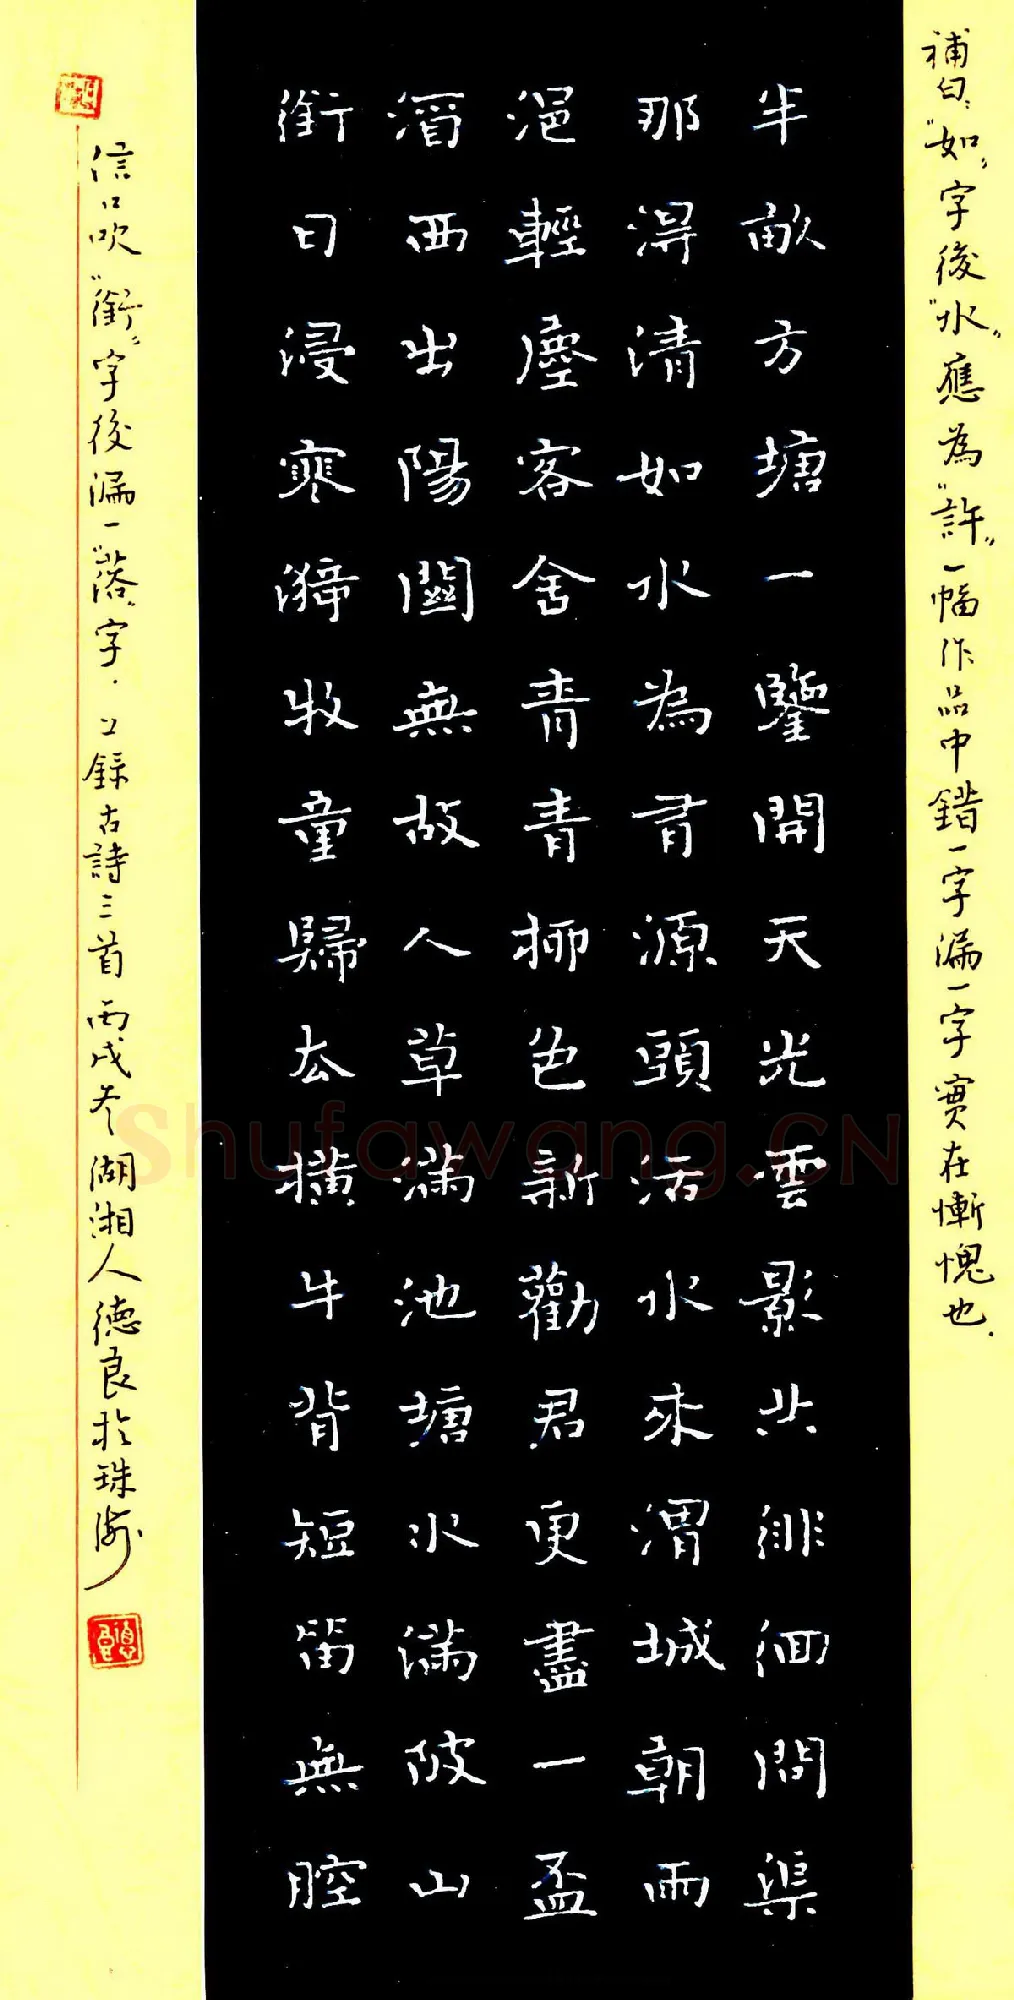 補白："如"字後"水"應為"許"一幅作品中錯一字漏一字實在慚愧也．
半畝方塘一鑒開天光雲影共徘徊問渠
那得清如水為有源頭活水來渭城朝雨
浥輕塵客舍青青柳色新勸君更盡一盃
酒西出陽關無故人草滿池塘水滿陂山
銜日浸寒漪牧童歸去橫牛背短笛無腔
信口吹"銜"字後漏一"落"字．
錄古詩三首丙戌冬湖湘人德良於珠海
Shufawang.CN